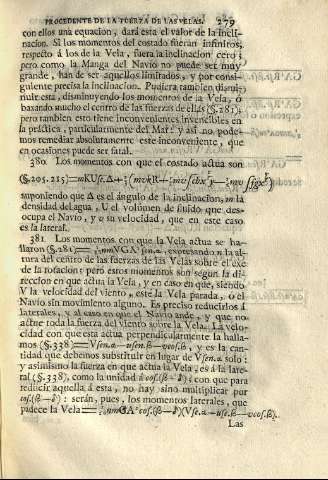 PROCEDENTE DE LA FUERZA DE LAS VELAS. 279
con ellos una equacion, dará esta el valor de la incli-
nacion. Si los momentos del costado fueran infinitos,
respecto á los de la Vela, fuera la inclinacion cero;
pero como la Manga del Navio no puede ser muy
grande, han de ser aquellos limitados, y por consi-
guiente precisa la inclinacion. Pudiera tambien dismi-
nuir esta, disminuyendo los momentos de la Vela, ó
baxando mucho el centro de las fuerzas de ellas (§.281);
pero tambien esto tiene inconvenientes invencibles en
la práctica, particularmente del Mar: y asi no pode-
mos remediar absolutamente este inconveniente, que
en ocasiones puede ser fatal.
380. Los momentos con que el costado actua son
(§§.205.225)
suponiendo que Δ es el ángulo de la inclinacion, m la
densidad del agua, U el volúmen de fluido que des-
ocupa el Navio, y u su velocidad, que en este caso
es la lateral.
381. Los momentos con que la Vela actua se ha-
llaron (§.286) expresando n la al-
tura del centro de las fuerzas de las Velas sobre el exe
de la rotacion; pero estos momentos son segun la di-
reccion en que actua la Vela, y en caso en que, siendo
V la velocidad del viento, este la Vela parada, ó el
Navio sin movimiento alguno. Es preciso reducirlos á
laterales, y al caso en que el Navio ande, y que no
actue toda la fuerza del viento sobre la Vela. La velo-
cidad con que esta actua perpendicularmente la halla-
mos (§.338) y es la can-
tidad que debemos substituir en lugar de V sen.α solo:
y asimismo la fuerza en que actua la Vela, es á la late-
ral (§.338), como la unidad á con que para
reducir aquella á esta, no hay sino multiplicar por
serán, pues, los momentos laterales, que
padece la Vela
Las